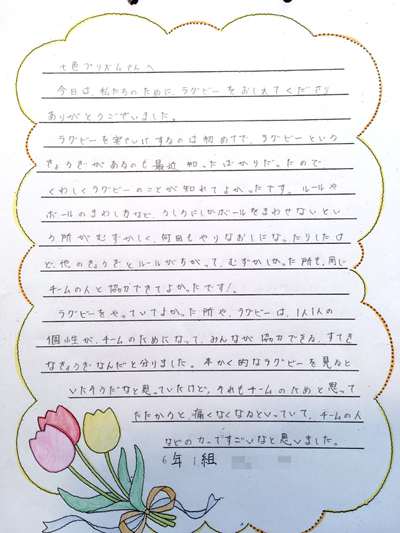 七色プリズムさんへ
今日は、私たちのために、ラグビーをおしえてくださり
ありがとうございました。
ラグビーを実さいにするのは初めてで、ラグビーという
きょうぎがあるのも最近知ったばかりだったので
くわしくラグビーのことが知れてよかったです。ルールや
ボールのまわし方など、うしろにしかボールをまわせないとい
う所がむずかしく、何回もやりなおしになったりしたけ
ど、他のきょうぎとルールがちがって、むずかしかった所も、同じ
チームの人と協力できてよかったです!。
ラグビーをやっていてよかった所や、ラグビーは、1人1人の
個性が、チームのためになって、みんなが協力できる、すてき
なきょうぎなんだと分りました。本かく的なラグビーを見ると
いたそうだなと思っていたけど、それもチームのためと思って
たたかうと、痛くなくなるといっていて、チームの人
などの力ってすごいなと思いました。
6年1組